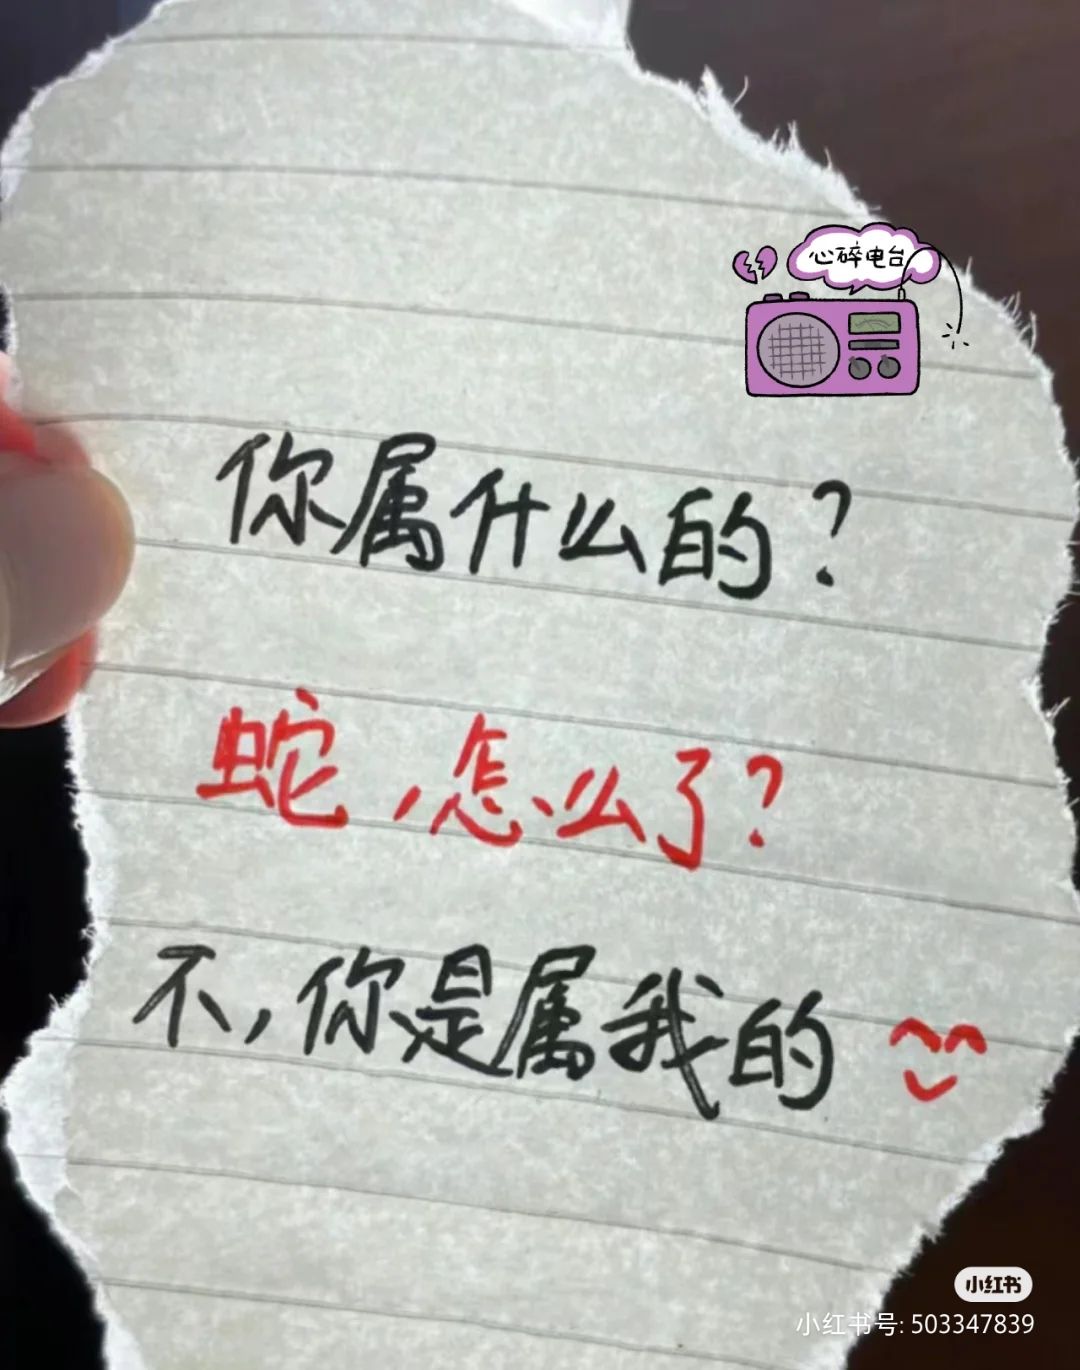 心碎电台
你属什么的？
蛇，怎么了？
不，你是属我的
小红书
小红书号: 503347839